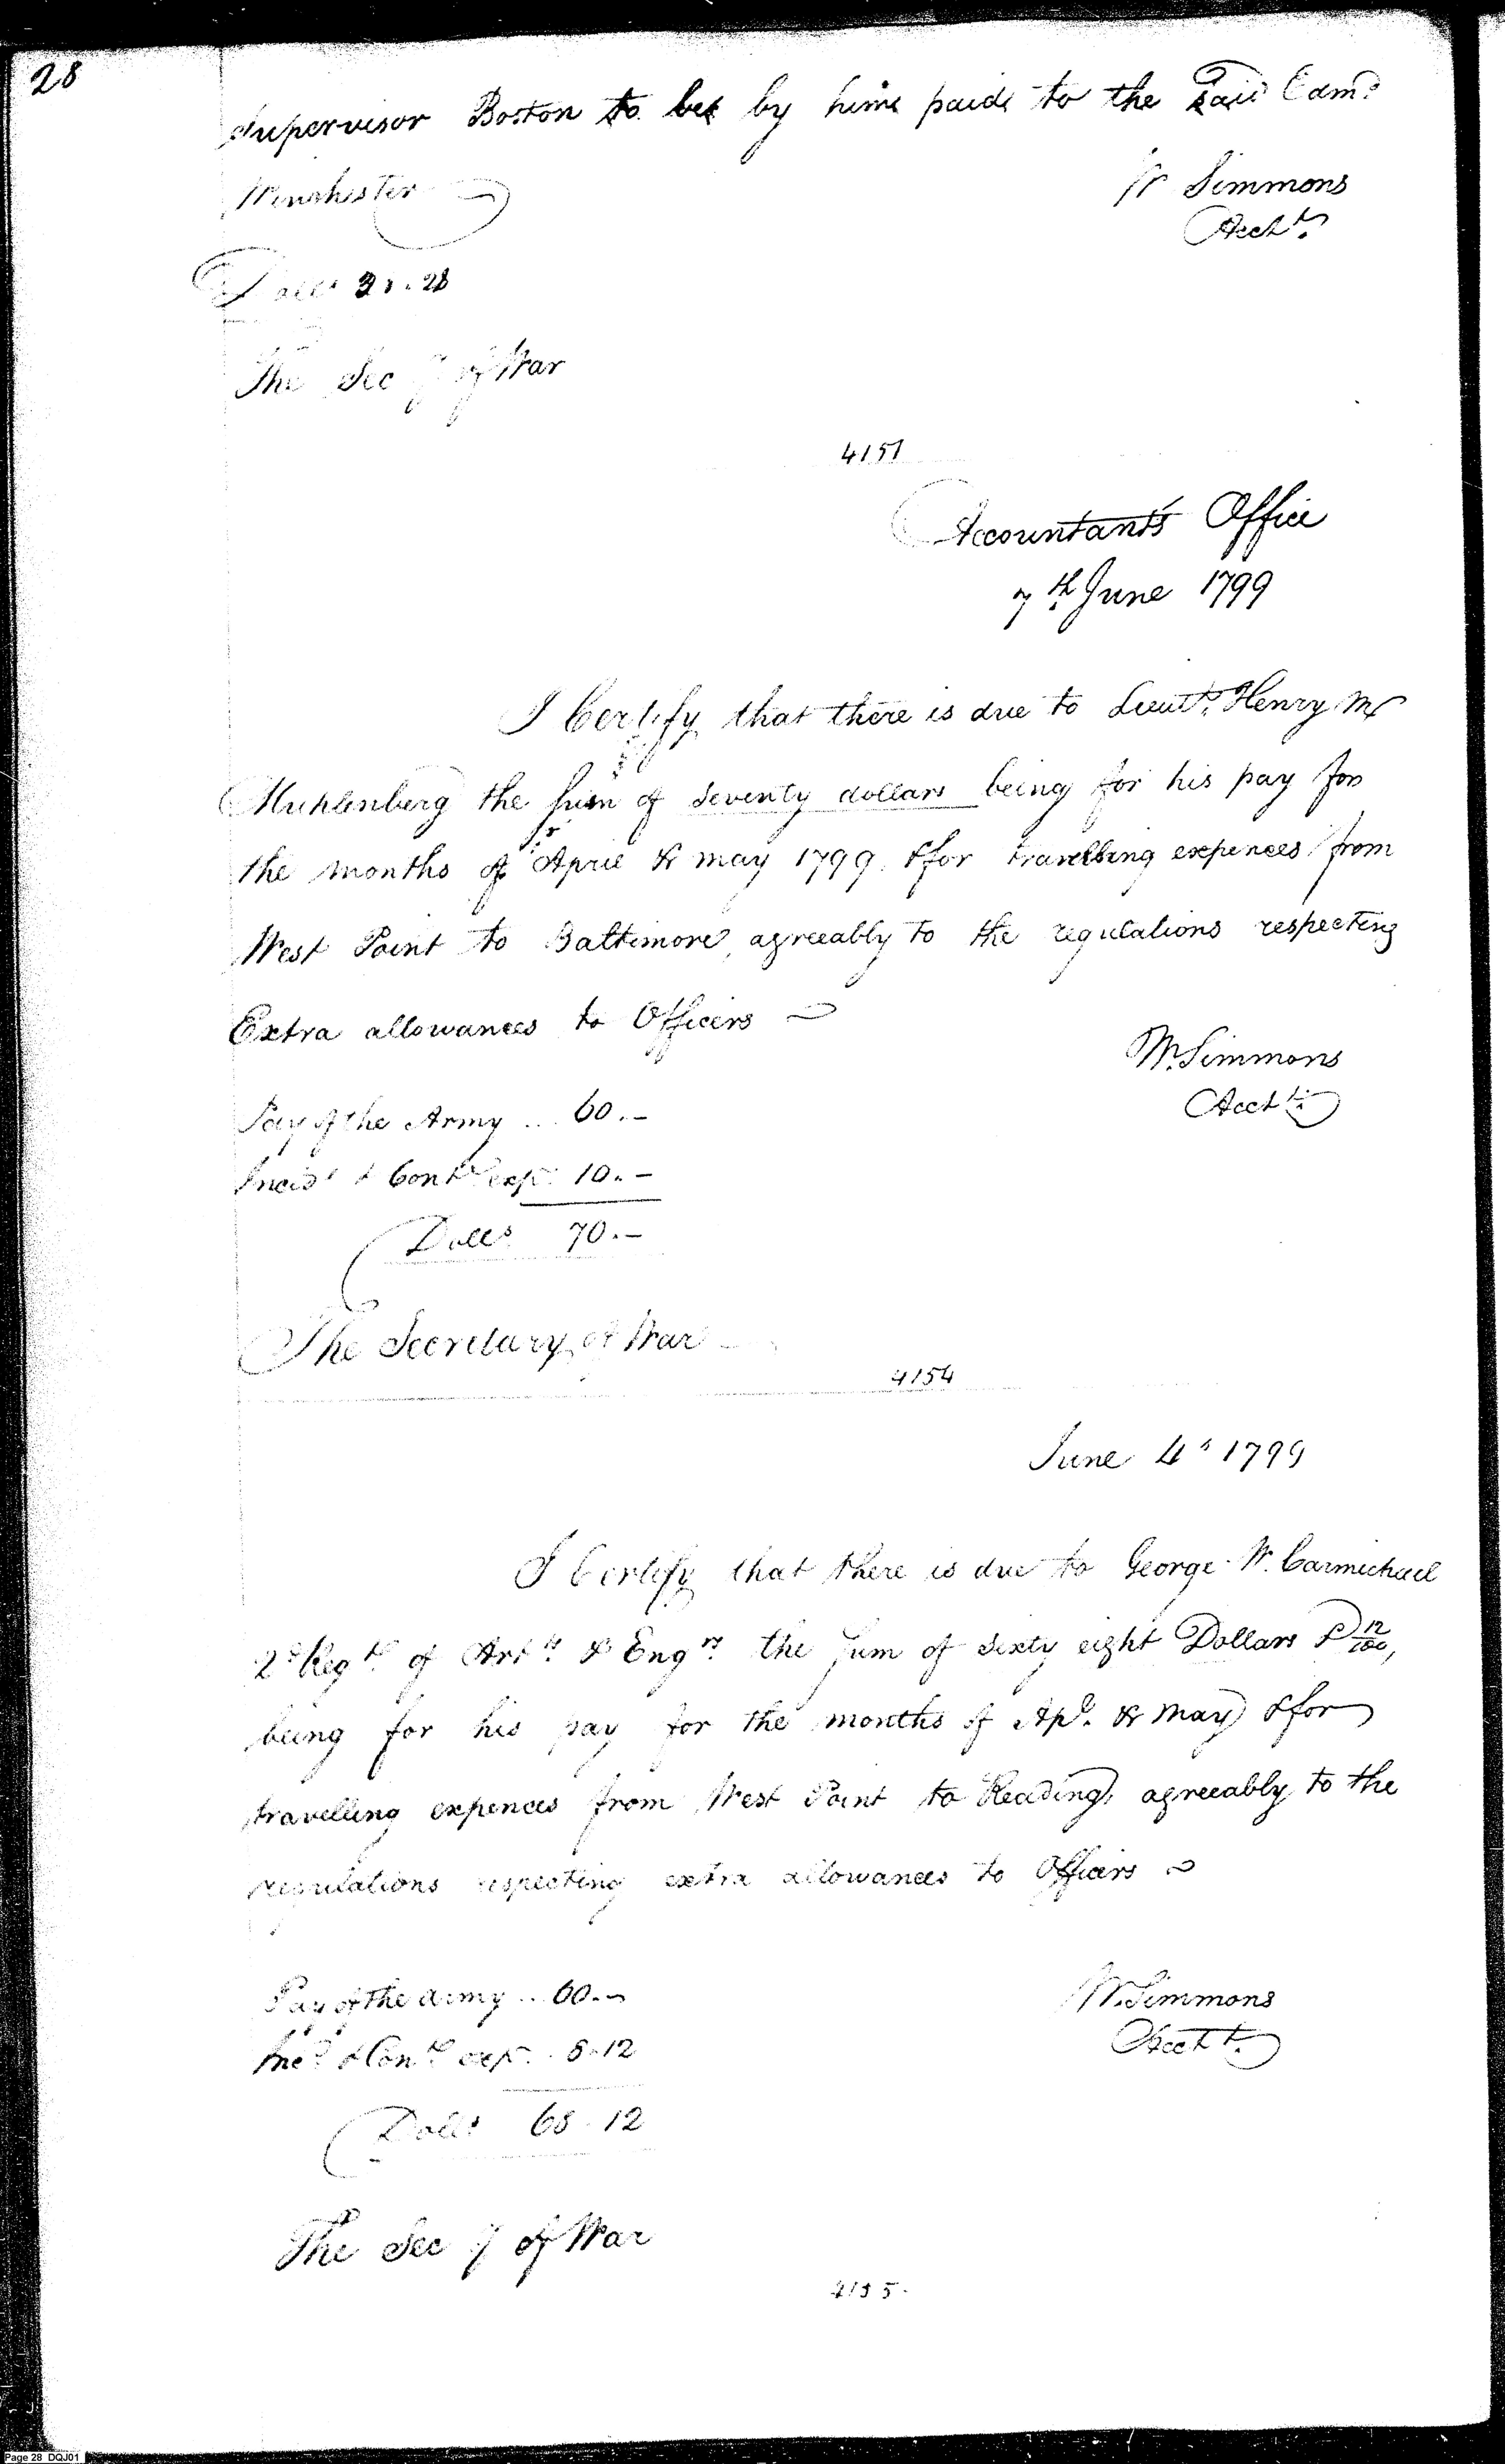 28
Supervisor Boston to be by him paid to the said Edmd
Winchester
Dolls 31.28
W Simmons
Acctt.
The Secy of War
4151
Accountants Office
7th June 1799
I Certify that there is due to Lieutt. Henry M
Muhlenberg the sum of Seventy dollars being for his pay for
the months of April & may 1799 & for travelling expences from
West Point to Baltimore, agreeably to the regulations respecting
Extra allowances to Officers
W. Simmons
Acctt.
Pay of the Army .. 60.-
Incidt & Contt exps 10.-
Dolls 70.-
The Secretary of War
4154
June 4th 1799
I Certify that there is due to George W. Carmichael
2d Regt. of Arts. & Engrs. the sum of sixty eight Dollars & 12/100,
being for his pay for the months of Apl. & May & for
travelling expences from West Point to Reading, agreeably to the
regulations respecting extra allowances to Officers
Pay of the army .. 60.-
Incd & Cont exps. 8.12
Dolls 68.12
W. Simmons
Acctt.
The Secy of War
4155.
Page 28 DQJ01